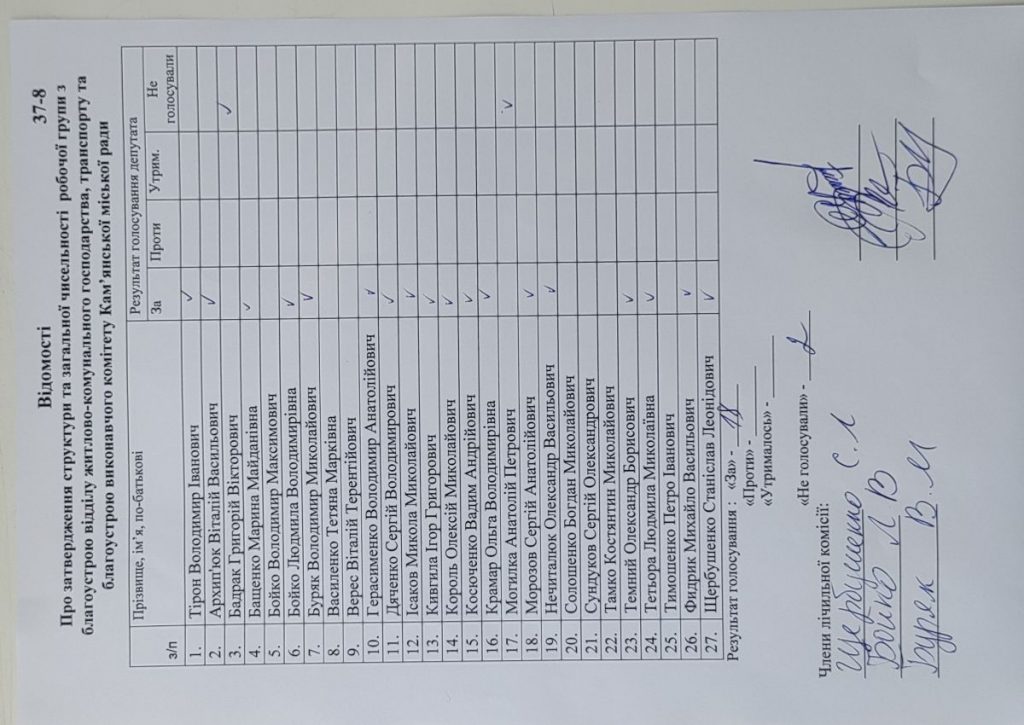 Відомості 37-8
Про затвердження структури та загальної чисельності робочої групи з
благоустрою відділу житлово-комунального господарства, транспорту та
благоустрою виконавчого комітету Кам'янської міської ради
з/п Прізвище, ім'я, по-батькові Результат голосування депутата
За Проти Утрим. Не голосували
1. Тірон Володимир Іванович ✓
2. Архип'юк Віталій Васильович ✓
3. Бадрак Григорій Вікторович ✓
4. Бащенко Марина Майданівна ✓
5. Бойко Володимир Максимович
6. Бойко Людмила Володимирівна ✓
7. Буряк Володимир Миколайович ✓
8. Василенко Тетяна Марківна
9. Верес Віталій Терентійович
10. Герасименко Володимир Анатолійович ✓
11. Дяченко Сергій Володимирович ✓
12. Ісаков Микола Миколайович ✓
13. Кивгила Ігор Григорович ✓
14. Король Олексій Миколайович ✓
15. Косюченко Вадим Андрійович ✓
16. Крамар Ольга Володимирівна ✓
17. Могилка Анатолій Петрович ✓
18. Морозов Сергій Анатолійович ✓
19. Нечиталюк Олександр Васильович ✓
20. Солошенко Богдан Миколайович
21. Сундуков Сергій Олександрович
22. Тамко Костянтин Миколайович
23. Темний Олександр Борисович ✓
24. Тетьора Людмила Миколаївна ✓
25. Тимошенко Петро Іванович
26. Фидрик Михайло Васильович ✓
27. Щербушенко Станіслав Леонідович ✓
Результат голосування : «За» - 18
«Проти» -
«Утрималось» -
«Не голосували» - 2
Члени лічильної комісії:
Щербушенко С.Л
Бойко Л В
Буряк В.М